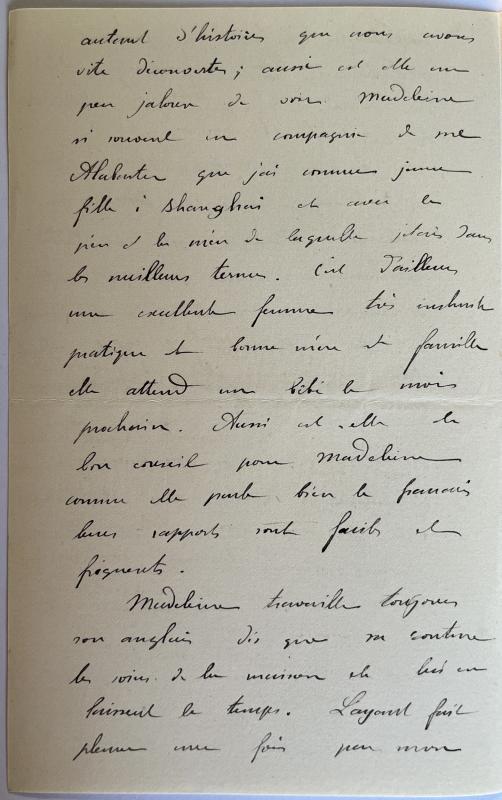 autant d'histoires que nous avons
vite découvertes ; aussi est elle un
peu jalouse de voir Madeleine
si souvent en compagnie de me
Alabaster que j'ai connue jeune
fille à Shanghai et avec le
père et la mère de laquelle j'étais dans
les meilleurs termes. C'est d'ailleurs
une excellente femme très instruite
pratique et bonne mère de famille
elle attend un bébé le mois
prochain. Aussi est-elle de
bon conseil pour Madeleine
comme elle parle bien le français
leurs rapports sont faciles et
fréquents.
Madeleine travaille toujours
son anglais dès que sa couture
les soins de la maison etc lui en
laissent le temps. Layard fait
pleurer une fois par mois